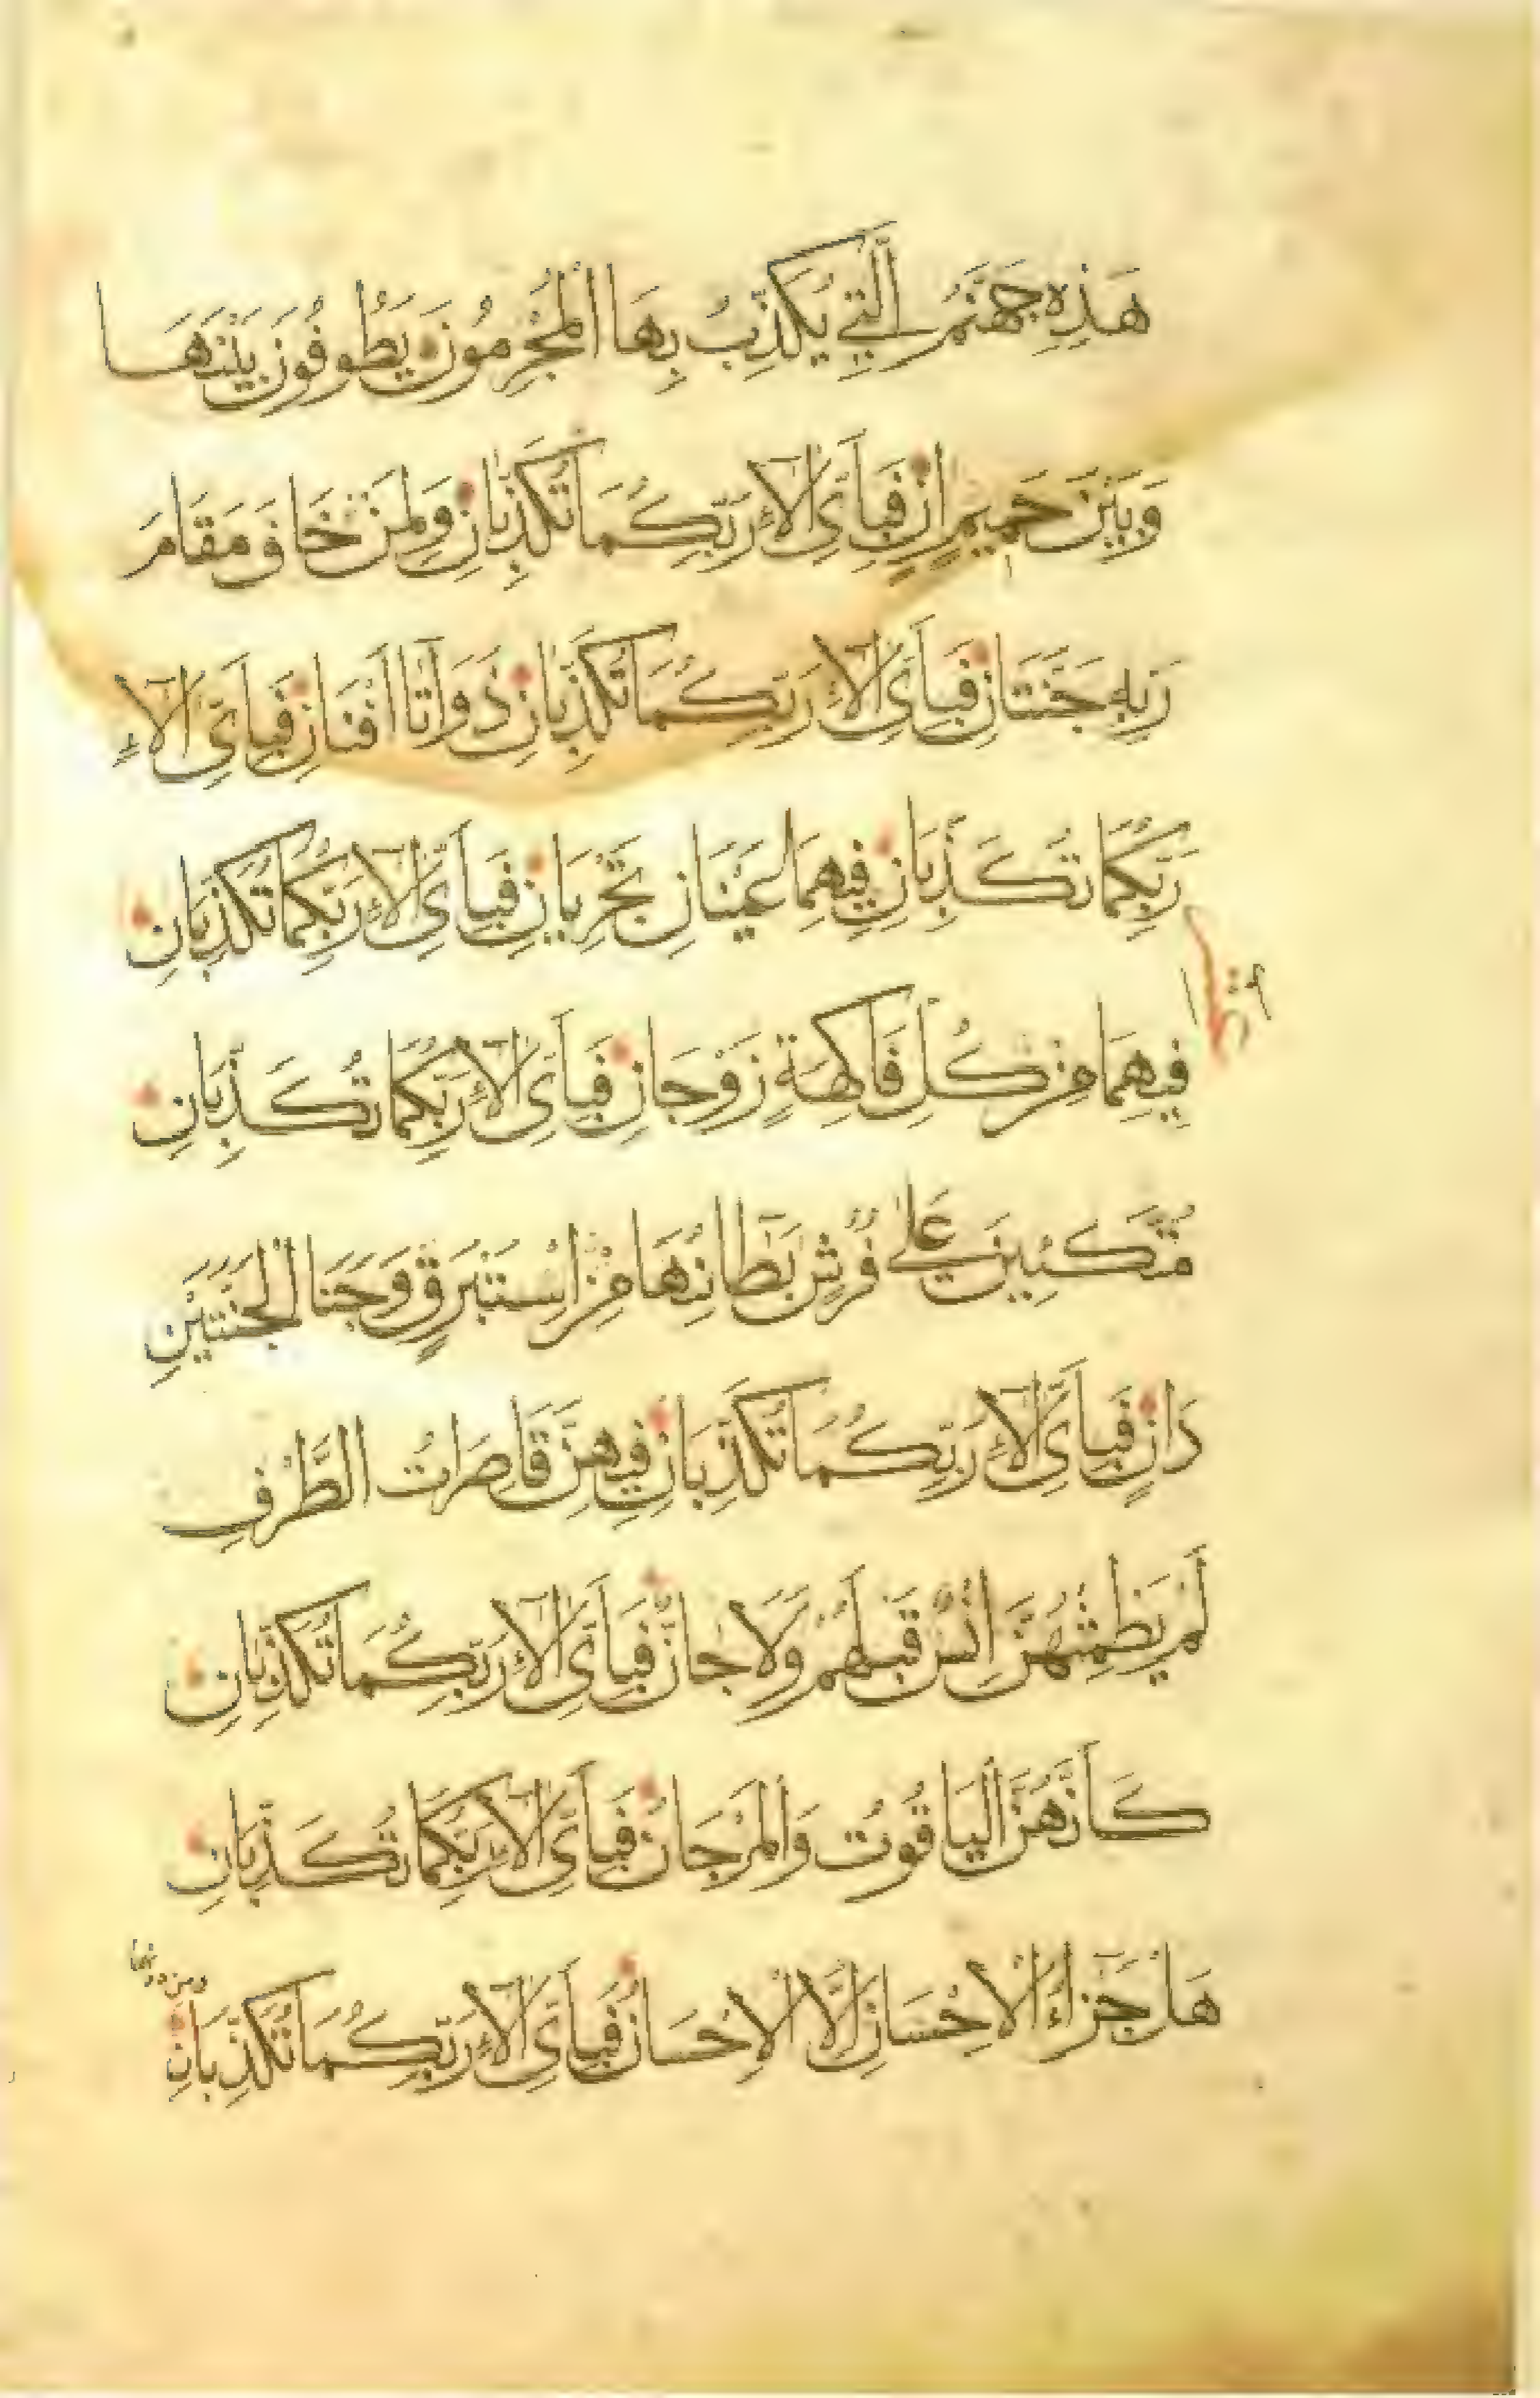 هَذِهِ جَهَنَّمُ الَّتِي يُكَذِّبُ بِهَا الْمُجْرِمُونَ يَطُوفُونَ بَيْنَهَا
وَبَيْنَ حَمِيمٍ اٰنٍ فَبِأَيِّ اٰلَاءِ رَبِّكُمَا تُكَذِّبَانِ وَلِمَنْ خَافَ مَقَامَ
رَبِّهِ جَنَّتَانِ فَبِأَيِّ اٰلَاءِ رَبِّكُمَا تُكَذِّبَانِ ذَوَاتَا أَفْنَانٍ فَبِأَيِّ اٰلَاءِ
رَبِّكُمَا تُكَذِّبَانِ فِيهِمَا عَيْنَانِ تَجْرِيَانِ فَبِأَيِّ اٰلَاءِ رَبِّكُمَا تُكَذِّبَانِ
فِيهِمَا مِنْ كُلِّ فَاكِهَةٍ زَوْجَانِ فَبِأَيِّ اٰلَاءِ رَبِّكُمَا تُكَذِّبَانِ
مُتَّكِئِينَ عَلَى فُرُشٍ بَطَائِنُهَا مِنْ اِسْتَبْرَقٍ وَجَنَا الْجَنَّتَيْنِ
دَانٍ فَبِأَيِّ اٰلَاءِ رَبِّكُمَا تُكَذِّبَانِ فِيهِنَّ قَاصِرَاتُ الطَّرْفِ
لَمْ يَطْمِثْهُنَّ اِنْسٌ قَبْلَهُمْ وَلَا جَانٌّ فَبِأَيِّ اٰلَاءِ رَبِّكُمَا تُكَذِّبَانِ
كَأَنَّهُنَّ الْيَاقُوتُ وَالْمَرْجَانُ فَبِأَيِّ اٰلَاءِ رَبِّكُمَا تُكَذِّبَانِ
هَلْ جَزَاءُ الْاِحْسَانِ اِلَّا الْاِحْسَانُ فَبِأَيِّ اٰلَاءِ رَبِّكُمَا تُكَذِّبَانِ
ومن دونهما